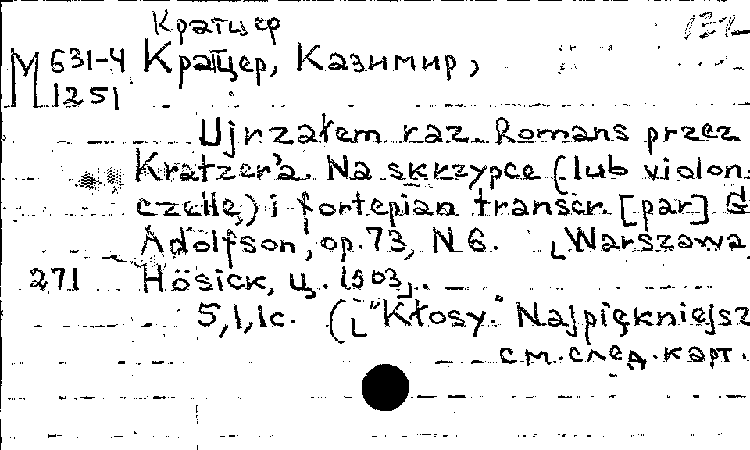 Кратцер
М 631-4 Кратцер, Казимир,
1251
Ujrzałem raz. Romans przez
Kratzer'a. Na skrzypce (lub violon
czelle) i fortepian transcr. [par] G
Adolfson, op. 73, N 6. [Warszawa
271 Hösick, ц. 1503].
5,1,1c. (["Kłosy." Najpiękniejsz
см. след. карт.